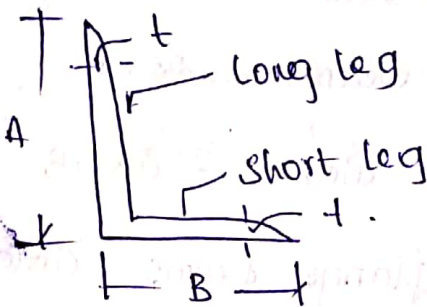 t
Long leg
A
Short leg
t.
B